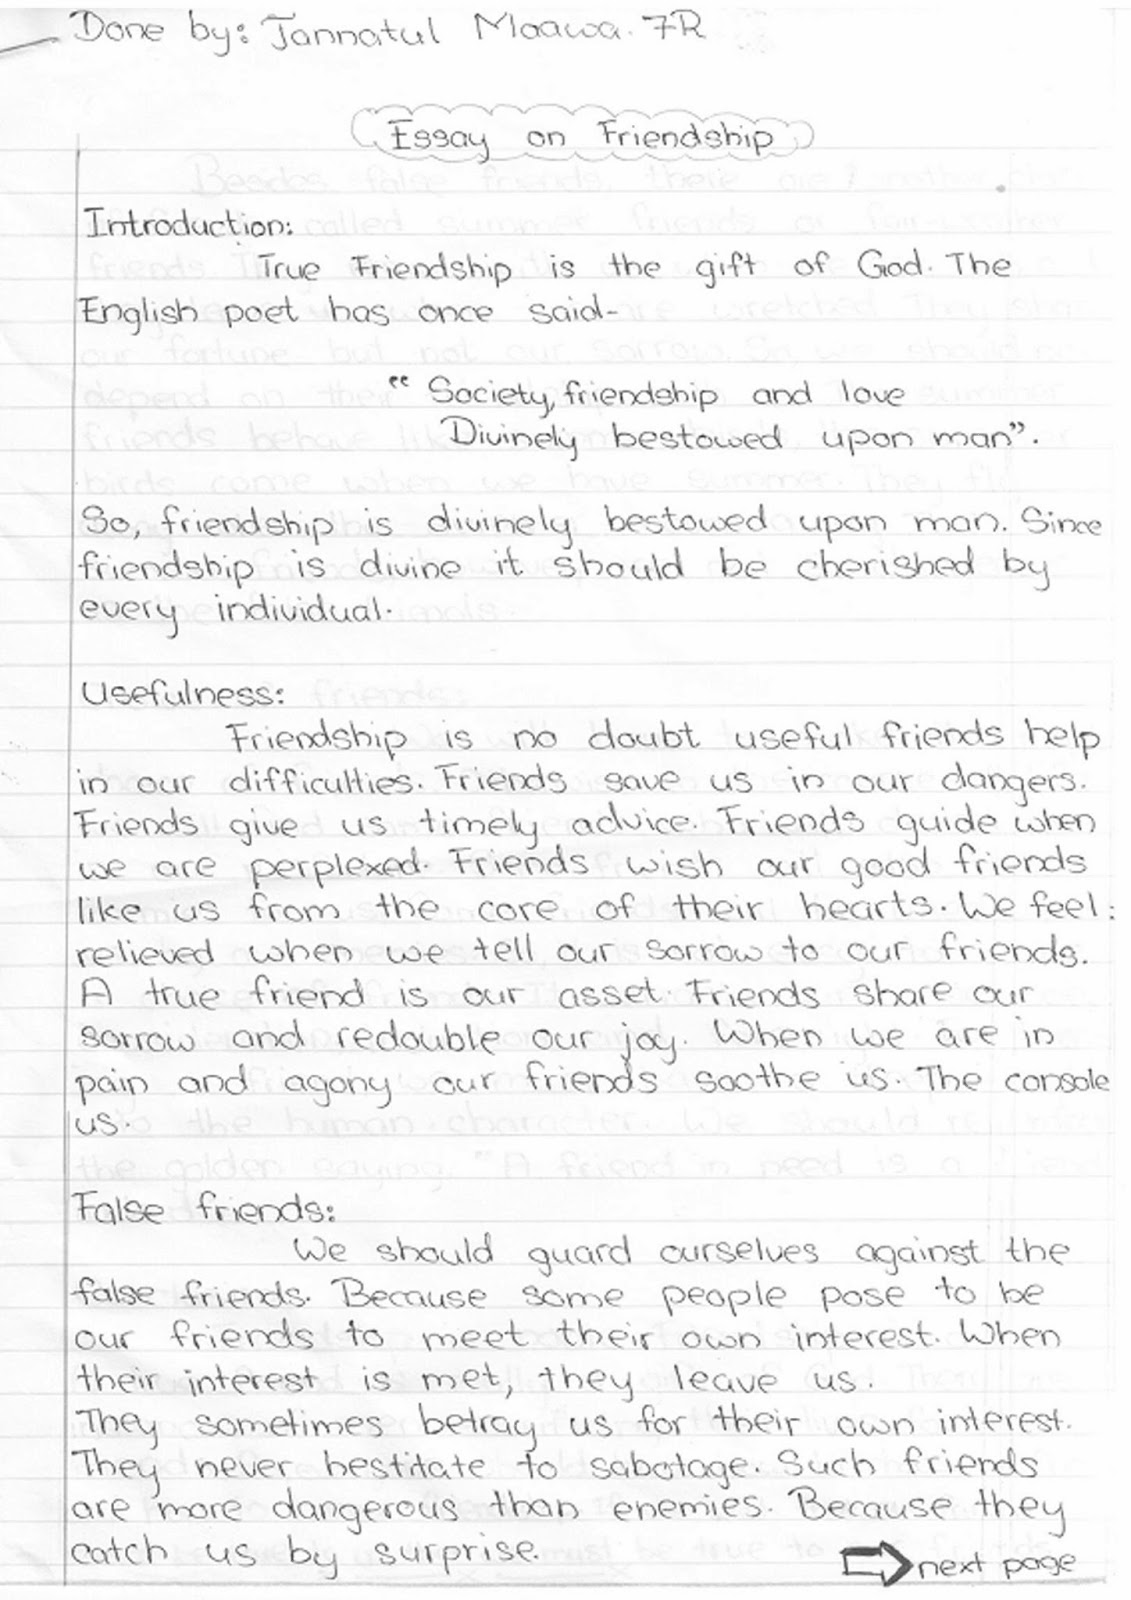 Done by: Jannatul Maawa. 7R
Essay on Friendship
Introduction:
True Friendship is the gift of God. The
English poet has once said-
" Society, friendship and love
Divinely bestowed upon man".
So, friendship is divinely bestowed upon man. Since
friendship is divine it should be cherished by
every individual.
Usefulness:
Friendship is no doubt useful friends help
in our difficulties. Friends save us in our dangers.
Friends give us timely advice. Friends guide when
we are perplexed. Friends wish our good friends
like us from the core of their hearts. We feel
relieved when we tell our sorrow to our friends.
A true friend is our asset. Friends share our
sorrow and redouble our joy. When we are in
pain and agony our friends soothe us. The console
us.
False friends:
We should guard ourselves against the
false friends. Because some people pose to be
our friends to meet their own interest. When
their interest is met, they leave us.
They sometimes betray us for their own interest.
They never hestitate to sabotage. Such friends
are more dangerous than enemies. Because they
catch us by surprise.
next page